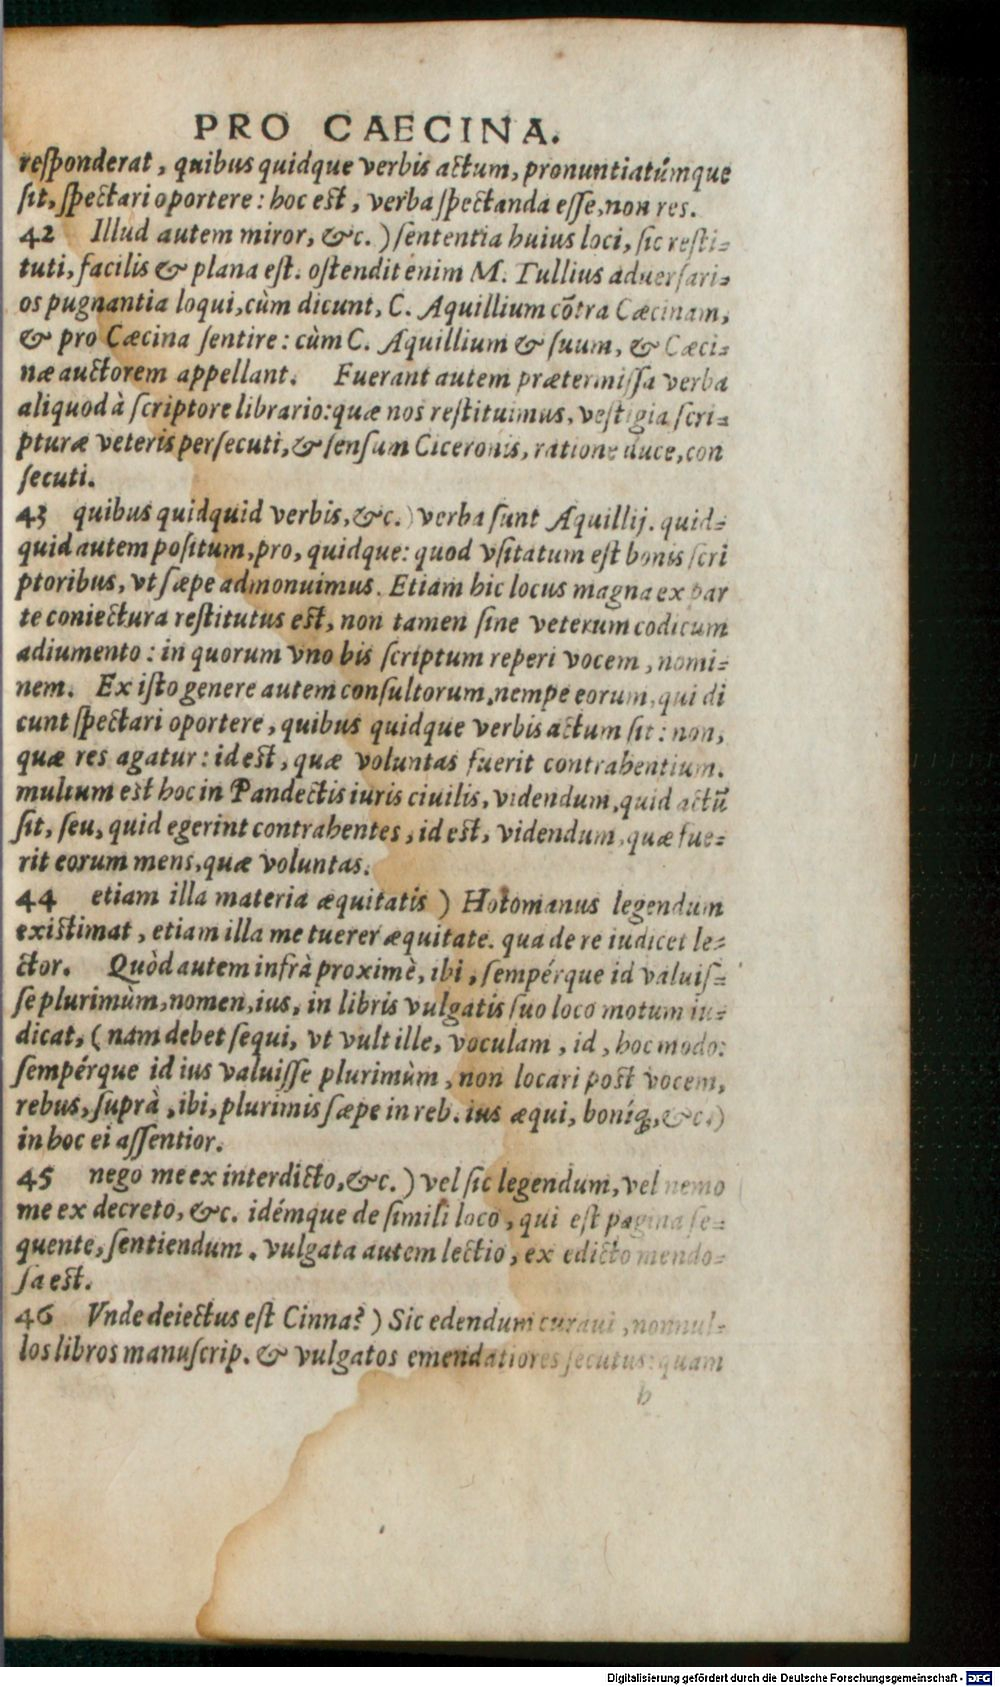 PRO CAECINA.
responderat, quibus quidque verbis actum, pronuntiatúmque
sit, spectari oportere: hoc est, verba spectanda esse, non res.
42 Illud autem miror, &c. ) sententia huius loci, sic resti-
tuti, facilis & plana est. ostendit enim M. Tullius aduersari-
os pugnantia loqui, cùm dicunt, C. Aquillium cōtra Cæcinam,
& pro Cæcina sentire: cùm C. Aquillium & suum, & Cæci-
næ auctorem appellant. Fuerant autem prætermissa verba
aliquod à scriptore librario: quæ nos restituimus, vestigia scri-
pturæ veteris persecuti, & sensum Ciceronis, ratione duce, con
secuti.
43 quibus quidquid verbis, &c. ) verba sunt Aquillij. quid-
quid autem positum, pro, quidque: quod vsitatum est bonis scri
ptoribus, vt sæpe admonuimus. Etiam hic locus magna ex par
te coniectura restitutus est, non tamen sine veterum codicum
adiumento: in quorum vno bis scriptum reperi vocem, nomi-
nem. Ex isto genere autem consultorum, nempe eorum, qui di
cunt spectari oportere, quibus quidque verbis actum sit: non,
quæ res agatur: id est, quæ voluntas fuerit contrahentium.
multum est hoc in Pandectis iuris ciuilis, videndum, quid actū
sit, seu, quid egerint contrahentes, id est, videndum, quæ fue-
rit eorum mens, quæ voluntas.
44 etiam illa materia æquitatis ) Hotomanus legendum
existimat, etiam illa me tuerer æquitate. qua de re iudicet le-
ctor. Quòd autem infrà proximè, ibi, sempérque id valuis-
se plurimùm, nomen, ius, in libris vulgatis suo loco motum iu-
dicat, (nam debet sequi, vt vult ille, voculam, id, hoc modo:
sempérque id ius valuisse plurimùm, non locari post vocem,
rebus, suprà, ibi, plurimis sæpe in reb. ius æqui, boníq;, &c.)
in hoc ei assentior.
45 nego me ex interdicto, &c. ) vel sic legendum, vel nemo
me ex decreto, &c. idémque de simili loco, qui est pagina se-
quente, sentiendum. vulgata autem lectio, ex edicto mendo-
sa est.
46 Vnde deiectus est Cinna? ) Sic edendum curaui, nonnul-
los libros manuscrip. & vulgatos emendatiores secutus: quam
h
Digitalisierung gefördert durch die Deutsche Forschungsgemeinschaft - DFG